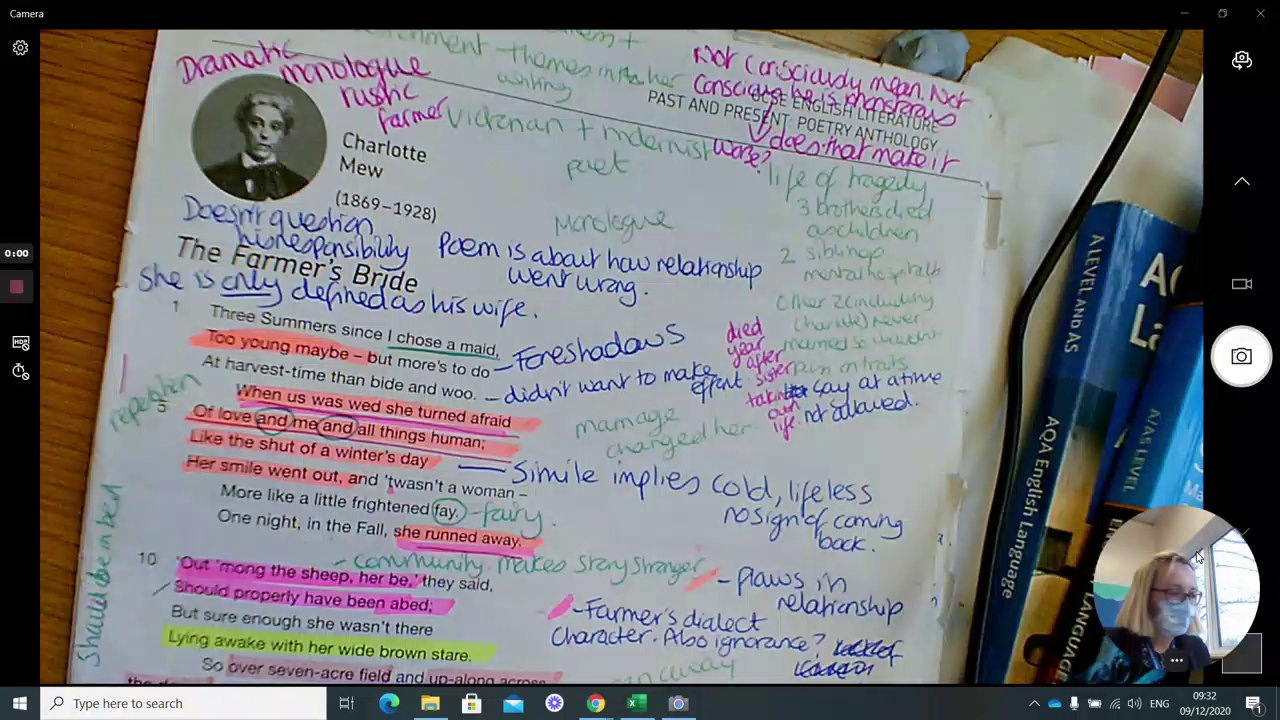 Camera
ronment - themes in her
writing
Dramatic
monologue
rustic
farmer
Not consciously mean. Not
conscious he is monsterous
GCSE ENGLISH LITERATURE
PAST AND PRESENT: POETRY ANTHOLOGY
does that make it
worse?
Victorian + modernist
poet
Charlotte
Mew
(1869–1928)
life of tragedy
3 brothers died
as children
2 siblings
mental hospitals
Other 2 (including
Charlotte) never
married so wouldn't
pass on traits
Monologue
Doesn't question
his responsibility
Poem is about how relationship
went wrong.
The Farmer's Bride
She is only defined as his wife.
1
Three Summers since I chose a maid,
Too young maybe – but more's to do
At harvest-time than bide and woo.
Foreshadows
- didn't want to make
effort
died
year
after
sister
taking
own
life.
gay at a time
not allowed.
repetition
When us was wed she turned afraid
5
Of love and me and all things human;
Like the shut of a winter's day
Her smile went out, and 'twasn't a woman –
More like a little frightened fay.
One night, in the Fall, she runned away.
marriage
changed her.
Simile implies cold, lifeless
no sign of coming
back.
- fairy
should be in bed
10
'Out 'mong the sheep, her be,' they said,
Should properly have been abed;
But sure enough she wasn't there
Lying awake with her wide brown stare.
So over seven-acre field and up-along across
- community makes story stronger
- flaws in
relationship
- Farmer's dialect
Character. Also ignorance?
away
A LEVEL AND AS
AQA English Language
A/AS LEVEL
0:00
HDR
Type here to search
ENG
09:32
09/12/2020
1